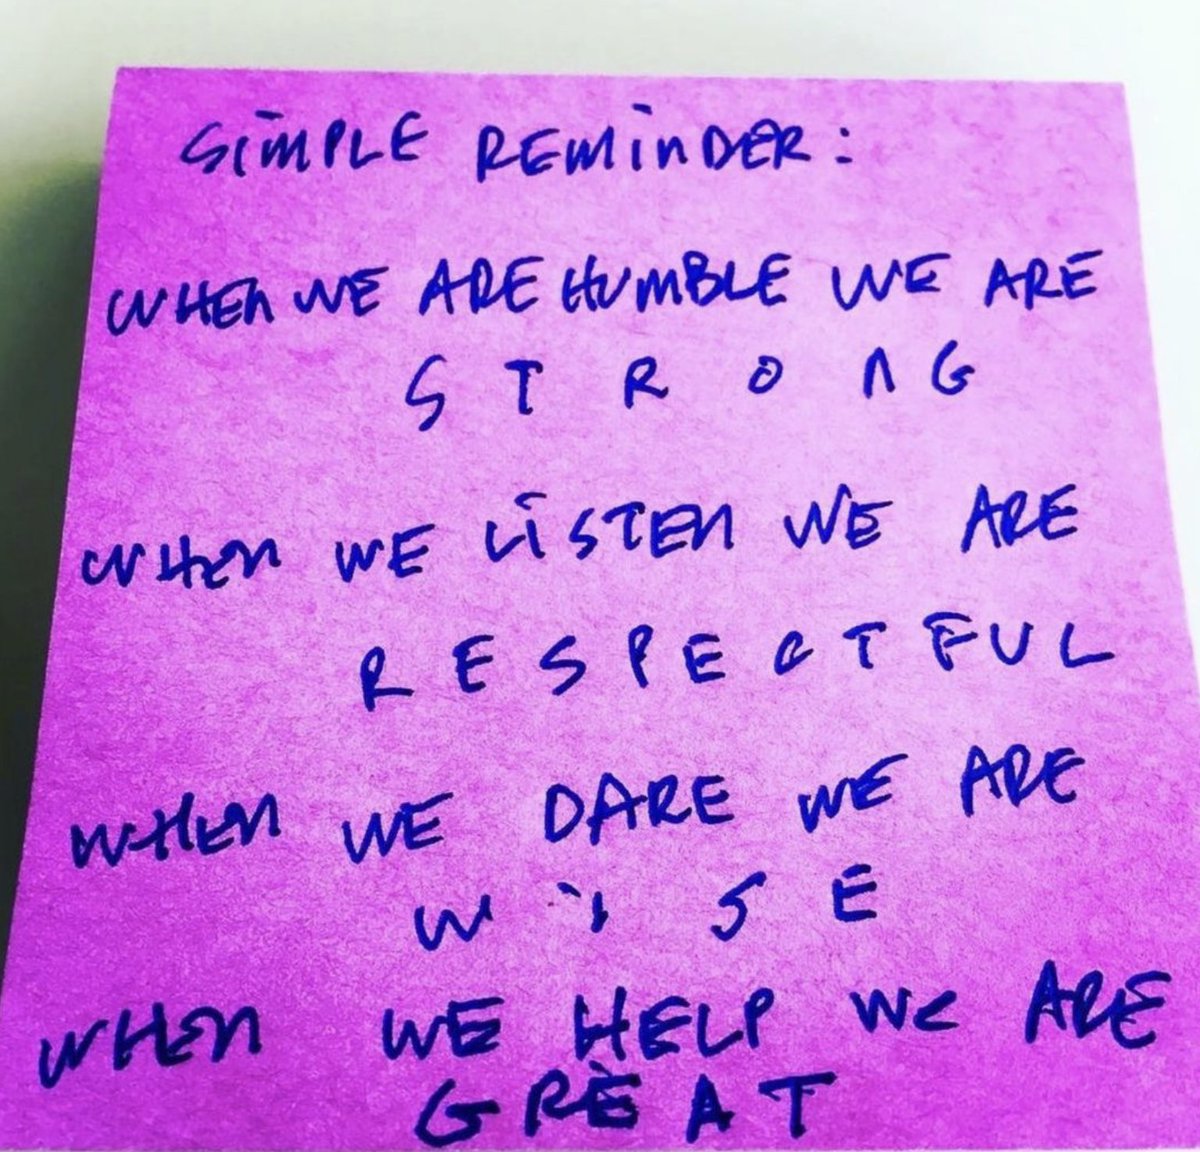 SIMPLE REMINDER:
WHEN WE ARE HUMBLE WE ARE
STRONG
WHEN WE LISTEN WE ARE
RESPECTFUL
WHEN WE DARE WE ARE
WISE
WHEN WE HELP WE ARE
GREAT